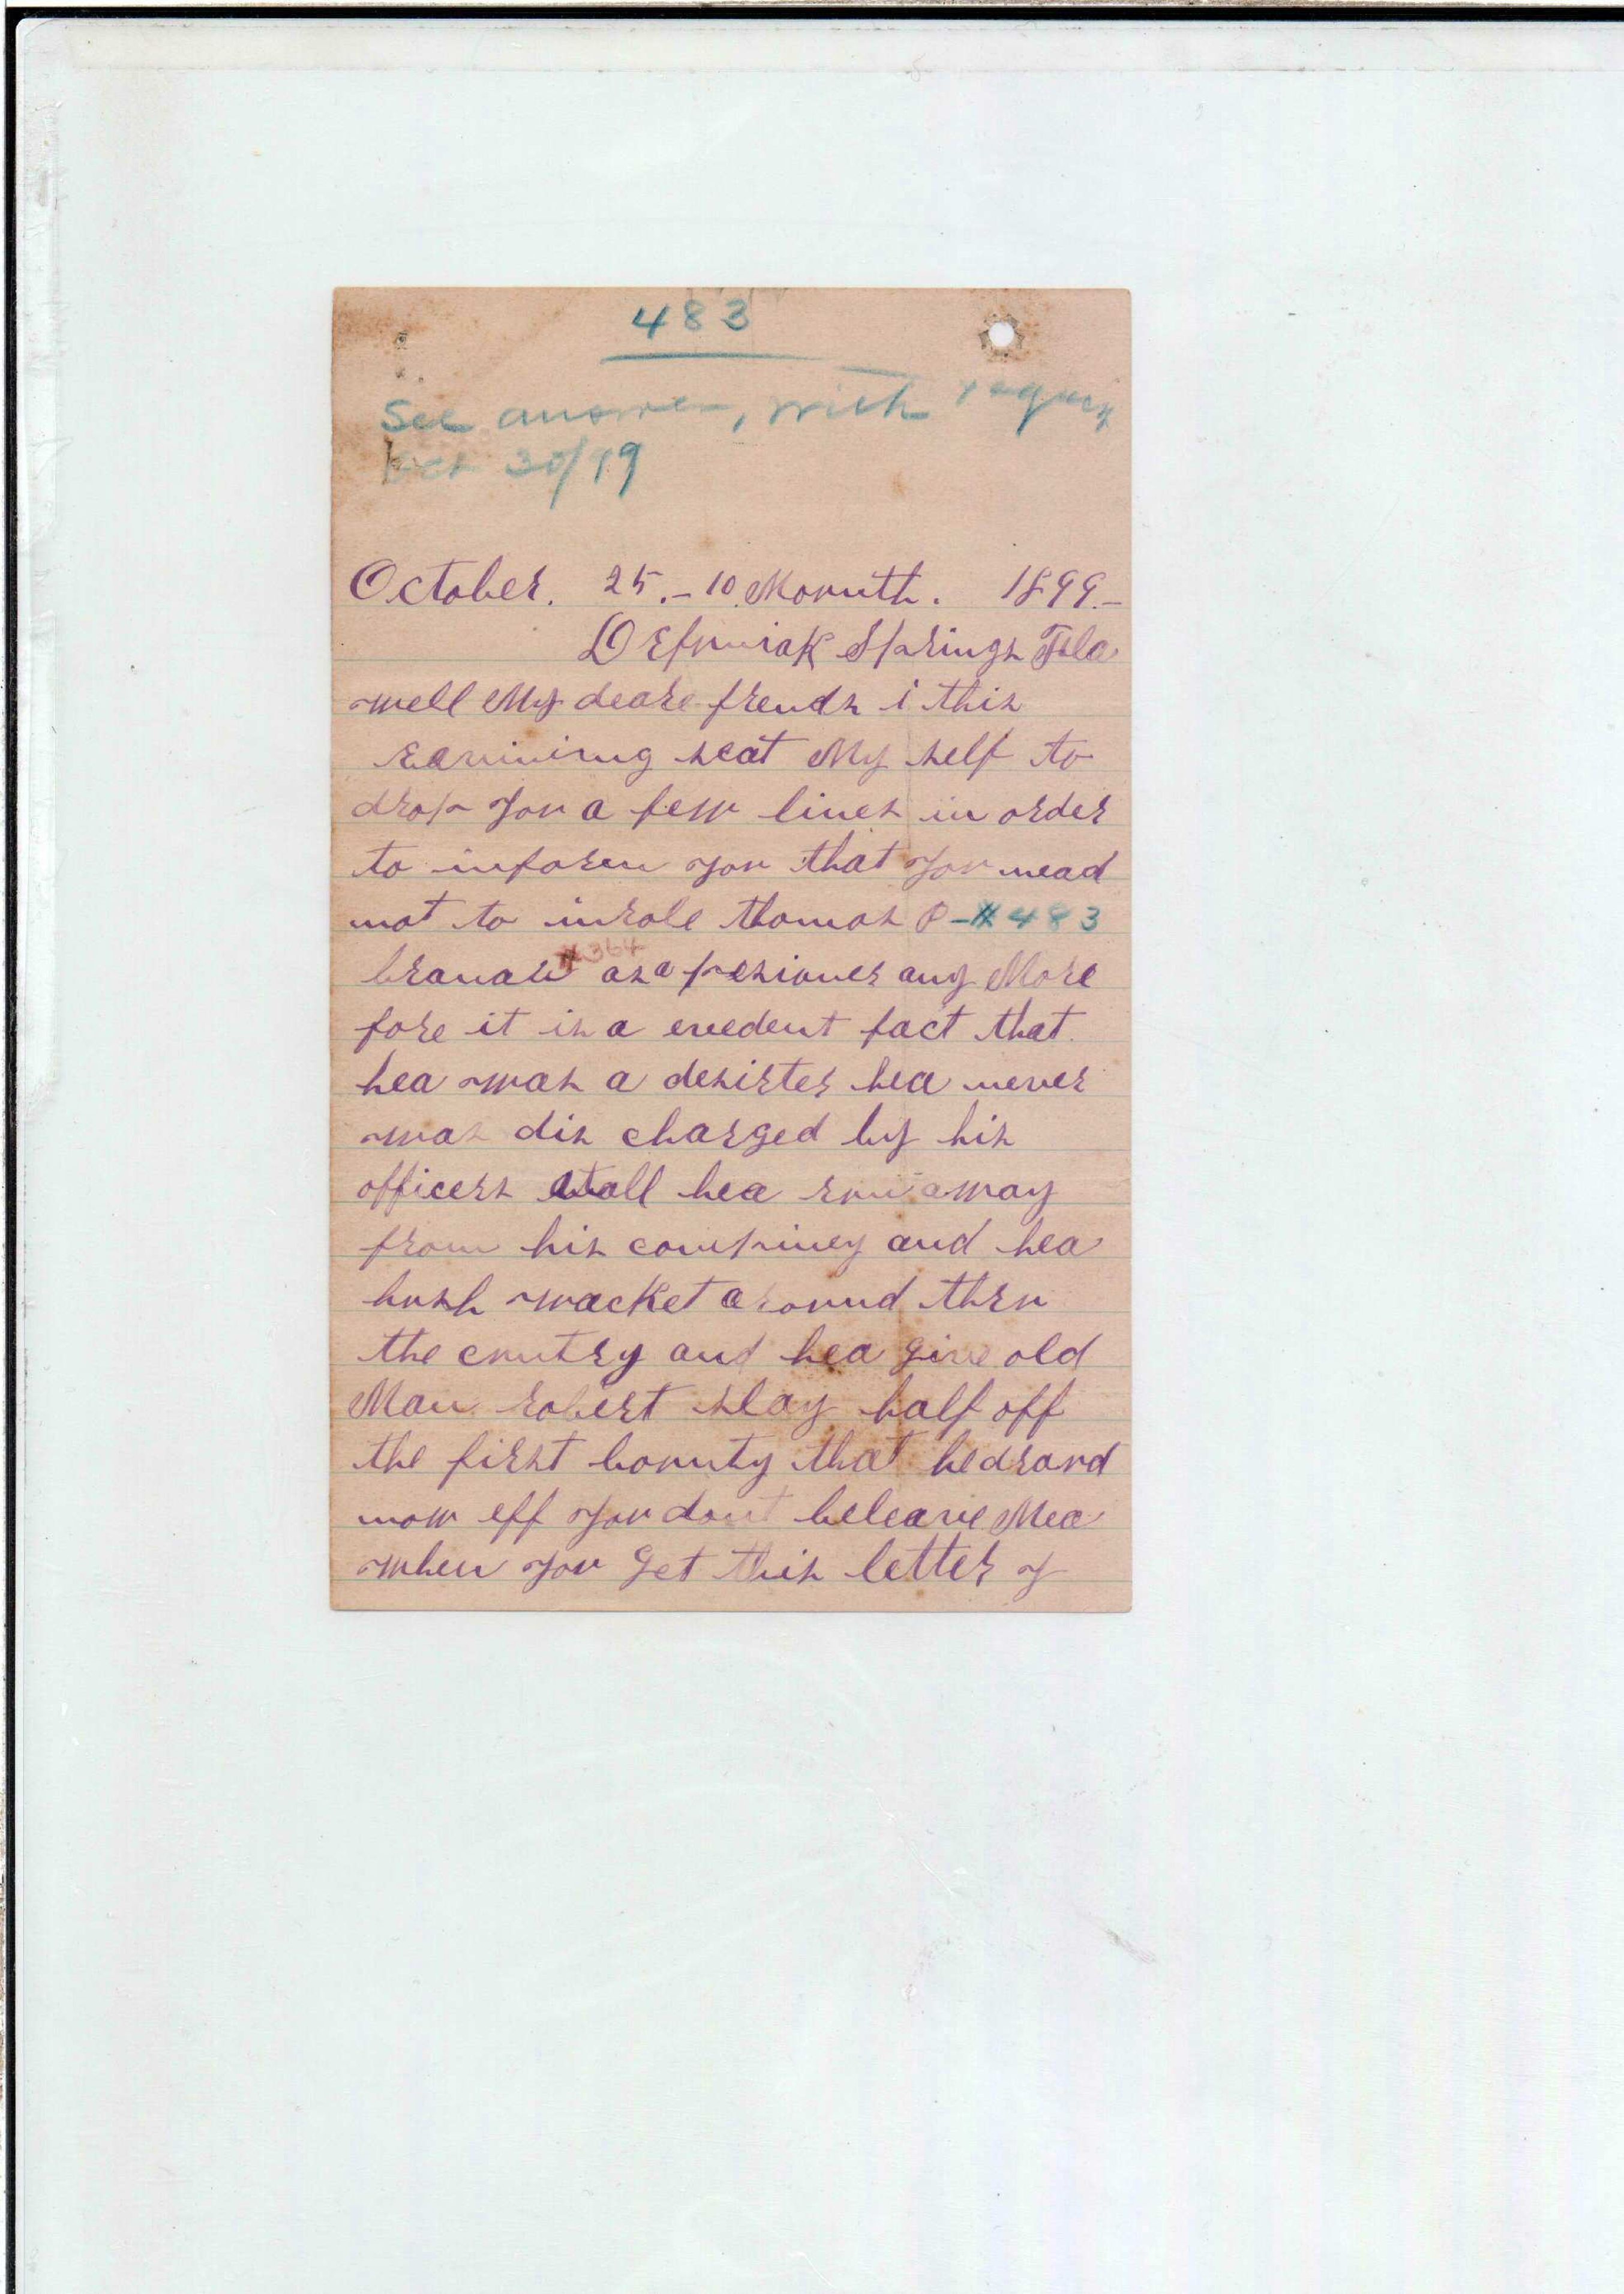 483
See answer, with
Oct 30/99
October. 25.- 10 Mounth. 1899.-
DEfuniak Springs Fla
well My deare frends i this
Eavining seat My self to
drop you a few lines in order
to inform you that you nead
not to inrole thomas P- #483
#364
branan as a pesioner any More
fore it is a evedent fact that
hea was a desirter hea never
was dis charged by his
officers atall hea run away
from his compiney and hea
bush wacket around thru
the cuntry and hea give old
Man robert slay half off
the first bounty that he drawd
now eff you dont beleave Mea
when you get this letter y